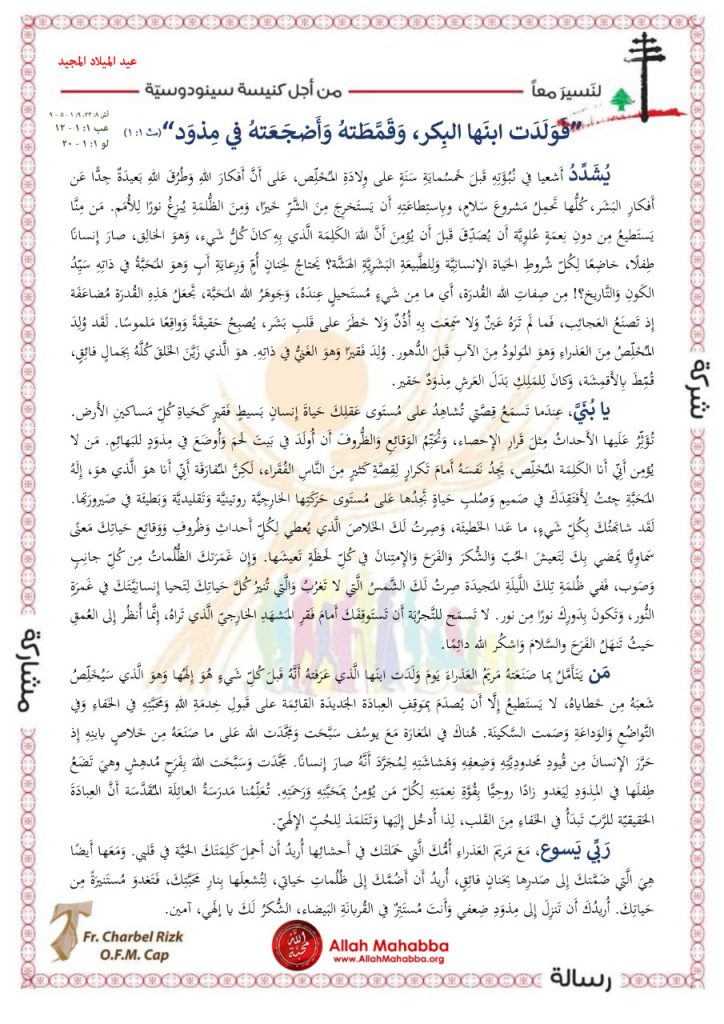 عيد الميلاد المجيد
لنَسيرَ معاً
من أجل كنيسة سينودوسيّة
عب ١: ١ - ١٢
لو ١: ١ - ٢٠
”فَوَلَدَت ابنَها البِكر، وَقَمَّطَتهُ وَأَضجَعَتهُ في مِذوَد“
يُشَدِّدُ أشعيا في نُبُؤَتِهِ قَبلَ خَمسُمايَةِ سَنَةٍ على وِلادَةِ المُخَلِّص، عَلى أَنَّ أَفكارَ اللهِ وَطُرُقَ اللهِ بَعيدَةٌ جِدًّا عَن
أفكارِ البَشَر، كُلُّها تَحمِلُ مَشروعَ سَلامٍ، وبِاستِطاعَتِهِ أَن يَستَخرِجَ مِنَ الشَّرِّ خَيرًا، وَمِنَ الظُّلمَةِ يُبزِغُ نورًا لِلأُمَم. مَن مِنَّا
يَستَطيعُ مِن دونِ نِعمَةٍ عُلوِيَّة أَن يُصَدِّقَ قَبلَ أَن يُؤمِنَ أَنَّ اللهَ الكَلِمَةَ الَّذي بِهِ كانَ كُلُّ شَيء، وَهوَ الخالِق، صارَ إنسانًا
طِفلًا، خاضِعًا لِكُلِّ شُروطِ الحَياة الإنسانِيَّة وَلِلطَّبيعَةِ البَشَرِيَّة الهَشَّة؟ يَحتاجُ لِحَنانِ أُمٍّ وَرِعايَةِ أَبٍ وَهوَ المَحَبَّةُ في ذاتِهِ سَيِّدُ
الكَونِ وَالتَّاريخ؟! مِن صِفاتِ الله القُدرَة، أَي ما مِن شَيءٍ مُستَحيلٍ عِندَهُ، وَجَوهَرُ الله المَحَبَّة، تَجعَلُ هَذِهِ القُدرَة مُضاعَفَة
إذ تَصنَعُ العَجائِب، فَما لَم تَرَهُ عَينٌ وَلا سَمِعَت بِهِ أُذُنٌ وَلا خَطَرَ على قَلبِ بَشَر، يُصبِحُ حَقيقَةً وَواقِعًا مَلموسًا. لَقَد وُلِدَ
المُخَلِّصُ مِنَ العَذراءِ وَهوَ المَولودُ مِنَ الآبِ قَبلَ الدُّهور. وُلِدَ فَقيرًا وَهوَ الغَنِيُّ في ذاتِهِ. هوَ الَّذي زَيَّنَ الخَلقَ كُلَّهُ بِجَمالٍ فائِقٍ،
قُمِّطَ بِالأَقمِشَة، وَكانَ لِلمَلِكِ بَدَلَ العَرشِ مِذوَدٌ حَقير.
يا بُنَيَّ، عِندَما تَسمَعُ قِصَّتي تُشاهِدُ على مُستَوى عَقلِكَ حَياةَ إنسانٍ بَسيطٍ فَقيرٍ كَحَياةِ كُلِّ مَساكينِ الأرض.
تُؤَثِّرُ عَلَيها الأَحداثُ مِثلَ قَرارِ الإحصاء، وَتُحَتِّمُ الوَقائِع والظُّروفُ أَن أُولَدَ في بَيتَ لَحمَ وَأُوضَعَ في مِذوَدٍ للبَهائِم. مَن لا
يُؤمِن أَنِّي أَنا الكَلِمَة المُخَلِّص، يَجِدُ نَفسَهُ أَمامَ تَكرارٍ لِقِصَّةِ كَثيرٍ مِنَ النَّاسِ الفُقَراء، لَكِنَّ المُفارَقَة أَنِّي أَنا هوَ الَّذي هوَ، إِلَهُ
المَحَبَّةِ جِئتُ لِأَفتَقِدَكَ في صَميمِ وَصُلبِ حَياةٍ تَجِدُها على مُستَوى حَرَكَتِها الخارِجِيَّة روتينِيَّة وَتَقليدِيَّة وَبَطيئَة في صَيرورَتِها.
لَقَد شابَهتُكَ بِكُلِّ شَيءٍ، ما عَدا الخَطيئَة، وَصِرتُ لَكَ الخَلاصَ الَّذي يُعطي لِكُلِّ أَحداثِ وَظُروفِ وَوَقائِعِ حَياتِكَ مَعنًى
سَماوِيًّا يَمضي بِكَ لِتَعيشَ الحُبّ وَالشُّكرَ وَالفَرَحَ وَالإِمتِنانَ في كُلِّ لَحظَةٍ تَعيشُها. وَإن غَمَرَتكَ الظُّلُماتُ مِن كُلِّ جانِبٍ
وَصَوب، فَفي ظُلمَةِ تِلكَ اللَّيلَةِ المَجيدَة صِرتُ لَكَ الشَّمسُ الَّتي لا تَغرُبُ وَالَّتي تُنيرُ كُلَّ حَياتِكَ لِتَحيا إنسانِيَّتَكَ في غَمرَةِ
النُّور، وَتَكونَ بِدَورِكَ نورًا مِن نور. لا تَسمَح لِلتَّجرُبَة أَن تَستَوقِفَكَ أَمامَ فَقرِ المَشهَدِ الخارِجيّ الَّذي تَراهُ، إنَّما أُنظُر إلى العُمقِ
حَيثُ تَنهَلُ الفَرَحَ والسَّلامَ وَاشكُر الله دائِمًا.
مَن يَتَأَمَّلُ بِما صَنَعَتهُ مَريَمُ العَذراءَ يَومَ وَلَدَت ابنَها الَّذي عَرَفَتهُ أَنَّهُ قَبلَ كُلِّ شَيءٍ هُوَ إِلَهُها وَهوَ الَّذي سَيُخَلِّصُ
شَعبَهُ مِن خَطاياهُ، لا يَستَطيعُ إلَّا أَن يُصدَمَ بِمَوقِفِ العِبادَة الجَديدَة القائِمَة على قَبولِ خِدمَةِ اللهِ وَمَحَبَّتِهِ في الخَفاءِ وَفي
التَّواضُعِ وَالوَداعَةِ وَصَمت السَّكينَة. هُناكَ في المَغارَة مَعَ يوسُف سَبَّحَت وَمَجَّدَت الله على ما صَنَعَهُ مِن خَلاصٍ بابنِهِ إذ
حَرَّرَ الإنسانَ مِن قُيودِ مَحدودِيَّتِهِ وَضِعفِهِ وَهَشاشَتِهِ لِمُجَرَّدِ أَنَّهُ صارَ إنسانًا. مَجَّدَت وَسَبَّحَت اللهَ بِفَرَحٍ مُدهِشٍ وهيَ تَضَعُ
طِفلَها في المِذوَدِ لِيَغدو زادًا روحِيًّا بِقُوَّةِ نِعمَتِهِ لِكُلِّ مَن يُؤمِنُ بِمَحَبَّتِهِ وَرَحمَتِهِ. تُعَلِّمُنا مَدرَسَةُ العائِلَة المُقَدَّسَة أَنَّ العِبادَةَ
الحَقيقِيَّة للرَّبّ تَبدَأُ في الخَفاءِ مِنَ القَلب، لِذا أَدخُل إلَيها وَتَتَلمَذ لِلحُبّ الإلَهيّ.
رَبِّي يَسوع، مَعَ مَريَمَ العَذراءِ أُمُّكَ الَّتي حَمَلَتكَ في أَحشائِها أُريدُ أَن أَحمِلَ كَلِمَتَكَ الحَيَّة في قَلبي. وَمَعَها أَيضًا
هِيَ الَّتي ضَمَّتكَ إلى صَدرِها بِحَنانٍ فائِقٍ، أُريدُ أَن أَضُمَّكَ إلى ظُلُماتِ حَياتي، لِتُشعِلَها بِنارِ مَحَبَّتِكَ، فَتَغدوَ مُستَنيرَةً مِن
حَياتِكَ. أُريدُكَ أَن تَنزِلَ إلى مِذوَدِ ضِعفي وَأَنتَ مُستَتِرٌ في القُربانَةِ البَيضاء، الشُّكرُ لَكَ يا إلَهي، آمين.
شركة
مشاركة
رسالة
Fr. Charbel Rizk
O.F.M. Cap
الله محبّة
Allah Mahabba
www.AllahMahabba.org